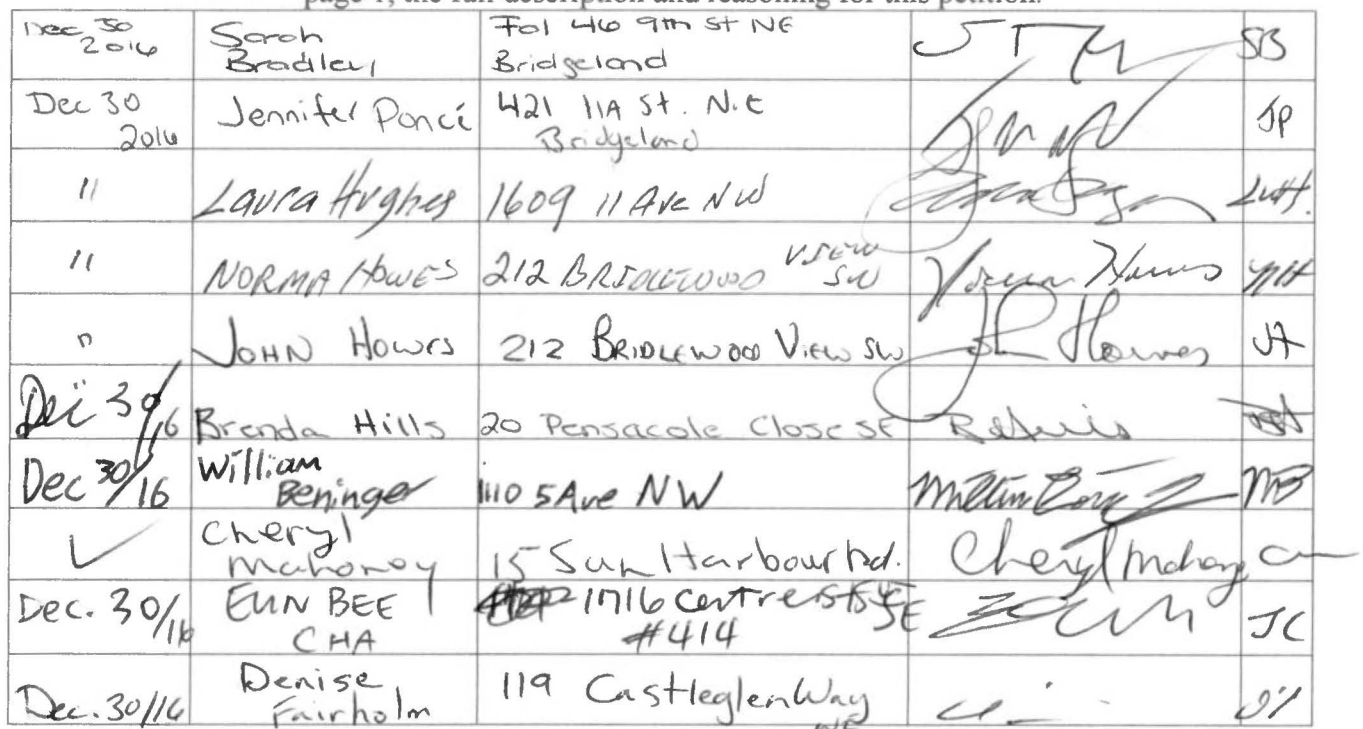 page 1, the full description and reasoning for this petition.
Dec 30 2016 Sarah Bradley 46 9th St NE Bridgeland SB
Dec 30 2016 Jennifer Poncé 421 11A St. N.E Bridgeland JP
" Laura Hughes 1609 11 Ave NW
" NORMA HOWES 212 BRIDLEWOOD VIEW SW NH
" JOHN HOWES 212 BRIDLEWOOD VIEW SW John Howes JH
Dec 30/16 Brenda Hills 20 Pensacole Close SE
Dec 30/16 William Beninger 1110 5 Ave NW WB
✓ Cheryl Mahoney 15 Sun Harbour Rd. Cheryl Mahoney CM
Dec. 30/16 EUN BEE CHA 1716 Centre st SE #414 JC
Dec. 30/16 Denise Fairholm 119 Castleglen Way NE